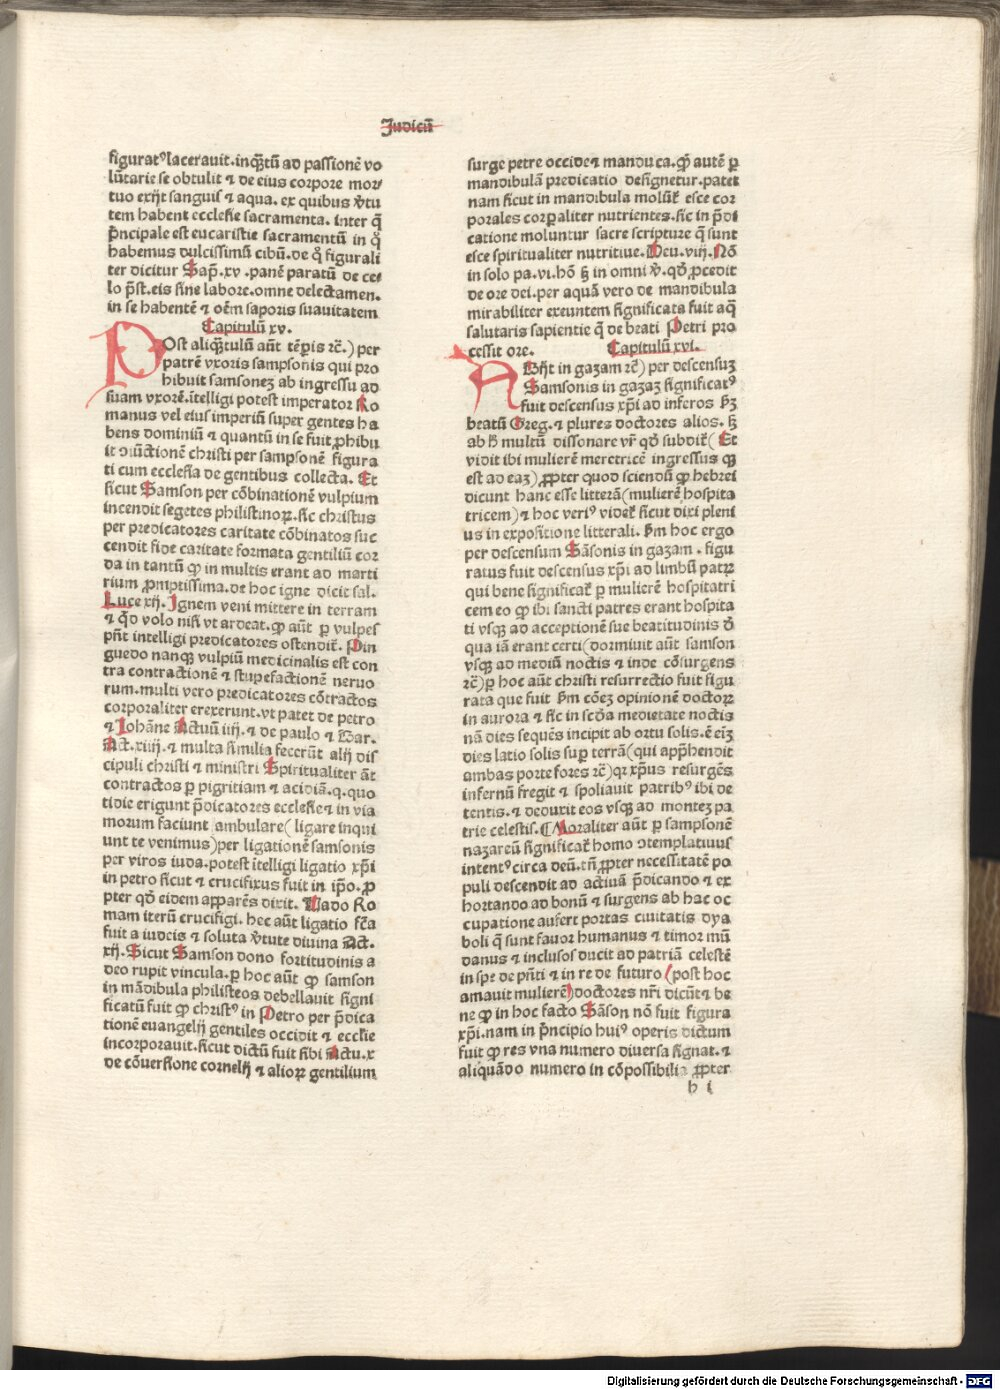 Judicũ
figurat⁹ lacerauit. inq̃tũ ad passionẽ vo
lũtarie se obtulit ⁊ de eius corpore mor
tuo exijt sanguis ⁊ aqua. ex quibus v̓tu
tem habent ecclesie sacramenta. inter q̃
p̃ncipale est eucaristie sacramentũ in q̊
habemus dulcissimũ cibũ. de q̊ figurali
ter dicitur Sap̃. xv. panẽ paratũ de ce
lo p̃st. eis sine labore. omne delectamen.
in se habentẽ ⁊ oẽm saporis suauitatem
Capitulũ xv.
POst aliq̃tulũ aũt tẽp̱is ⁊c̃.) per
patrẽ vxoris sampsonis qui pro
hibuit samsonez ab ingressu ad
suam vxorẽ. ĩtelligi potest imperator Ro
manus vel eius imperiũ super gentes ha
bens dominiũ ⁊ quantũ in se fuit ꝓhibu
it ↄiũctionẽ christi per sampsonẽ figura
ti cum ecclesia de gentibus collecta. Et
sicut Samson per cõbinationẽ vulpium
incendit segetes philistinoꝝ. sic christus
per predicatores caritate cõbinatos suc
cendit fide caritate formata gentiliũ cor
da in tantũ ꝙ in multis erant ad marti
rium ꝓmptissima. de hoc igne dicit sal.
Luce xij. Ignem veni mittere in terram
⁊ q̃d volo nisi vt ardeat. ꝙ aũt ꝑ vulpes
pñt intelligi predicatores ostendit̃. Pin
guedo nanq̃ vulpiũ medicinalis est con
tra contractionẽ ⁊ stupefactionẽ neruo
rum. multi vero predicatores cõtractos
corporaliter erexerunt. vt patet de petro
⁊ Iohãne Actuũ iij. ⁊ de paulo ⁊ Bar.
Act̃. xiiij. ⁊ multa similia fecerũt alij dis
cipuli christi ⁊ ministri Spiritualiter ãt
contractos ꝑ pigritiam ⁊ acidiã. q. quo
tidie erigunt p̃dicatores ecclesie ⁊ in via
morum faciunt ambulare (ligare inqui
unt te venimus) per ligationẽ samsonis
per viros iuda. potest ĩtelligi ligatio xp̃i
in petro sicut ⁊ crucifixus fuit in ip̃o. ꝓ
pter qd̃ eidem apparẽs dixit. Vado Ro
mam iterũ crucifigi. hec aũt ligatio fc̃a
fuit a iudeis ⁊ soluta v̓tute diuina Act̃.
xij. Sicut Samson dono fortitudinis a
deo rupit vincula. ꝑ hoc aũt ꝙ samson
in mãdibula philisteos debellauit signi
ficatũ fuit ꝙ christ⁹ in Petro per p̃dica
tionẽ euangelij gentiles occidit ⁊ eccl̃ie
incorporauit. sicut dictũ fuit sibi Actu. x
de cõuersione cornelij ⁊ alioꝝ gentilium
surge petre occide ⁊ manduca. ꝙ autẽ ꝑ
mandibulã predicatio designetur. patet
nam sicut in mandibula molũt̃ esce cor
porales corꝑaliter nutrientes. sic in p̃di
catione moluntur sacre scripture q̃ sunt
esce spiritualiter nutritiue. Deu. viij. Nõ
in solo pa. vi. hõ ꝫ in omni v̓. qd̃ ꝓcedit
de ore dei. per aquã vero de mandibula
mirabiliter exeuntem significata fuit aq̃
salutaris sapientie q̃ de beati Petri pro
cessit ore.
Capitulũ xvi.
ABijt in gazam ⁊c̃) per descensuz
Samsonis in gazaz significat⁹
fuit descensus xp̃i ad inferos s̃m
beatũ Greg. ⁊ plures doctores alios. ꝫ
ab h̓ multũ dissonare vr̃ qd̃ subdit̃ (Et
vidit ibi mulierẽ meretricẽ ingressus q̃
est ad eaz) ꝓpter quod sciendũ ꝙ hebrei
dicunt hanc esse litterã (mulierẽ hospita
tricem) ⁊ hoc veri⁹ videt̃ sicut dixi pleni
us in expositione litterali. s̃m hoc ergo
per descensum Sãsonis in gazam. figu
ratus fuit descensus xp̃i ad limbũ patrꝝ
qui bene significat̃ ꝑ mulierẽ hospitatri
cem eo ꝙ ibi sancti patres erant hospita
ti vsq̃ ad acceptionẽ sue beatitudinis d̓
qua iã erant certi (dormiuit aũt samson
vsq̃ ad mediũ noctis ⁊ inde cõsurgens
⁊c̃) ꝑ hoc aũt christi resurrectio fuit figu
rata que fuit s̃m cõez opinionẽ doctoꝝ
in aurora ⁊ sic in sc̃da medietate noctis
nã dies sequẽs incipit ab ortu solis. ẽ eĩz
dies latio solis suꝑ terrã (qui appr̃hendit
ambas porte fores ⁊c̃) qꝛ xp̃us resurgẽs
infernũ fregit ⁊ spoliauit patrib⁹ ibi de
tentis. ⁊ deduxit eos vsq̃ ad montez pa
trie celestis. ¶ Moraliter aũt ꝑ sampsonẽ
nazareũ significat̃ homo ↄtemplatiuus
intent⁹ circa deũ. tñ ꝓpter necessitatẽ po
puli descendit ad actiuã p̃dicando ⁊ ex
hortando ad bonũ ⁊ surgens ab hac oc
cupatione aufert portas ciuitatis dya
boli q̃ sunt fauor humanus ⁊ timor mũ
danus ⁊ inclusos ducit ad patriã celestẽ
in spe de pñti ⁊ in re de futuro (post hoc
amauit mulierẽ) doctores nr̃i dicũt ⁊ be
ne ꝙ in hoc facto Sãson nõ fuit figura
xp̃i. nam in p̃ncipio hui⁹ operis dictum
fuit ꝙ res vna numero diuersa signat. ⁊
aliquãdo numero in cõpossibilia ꝓpter
h i
Digitalisierung gefördert durch die Deutsche Forschungsgemeinschaft - DFG